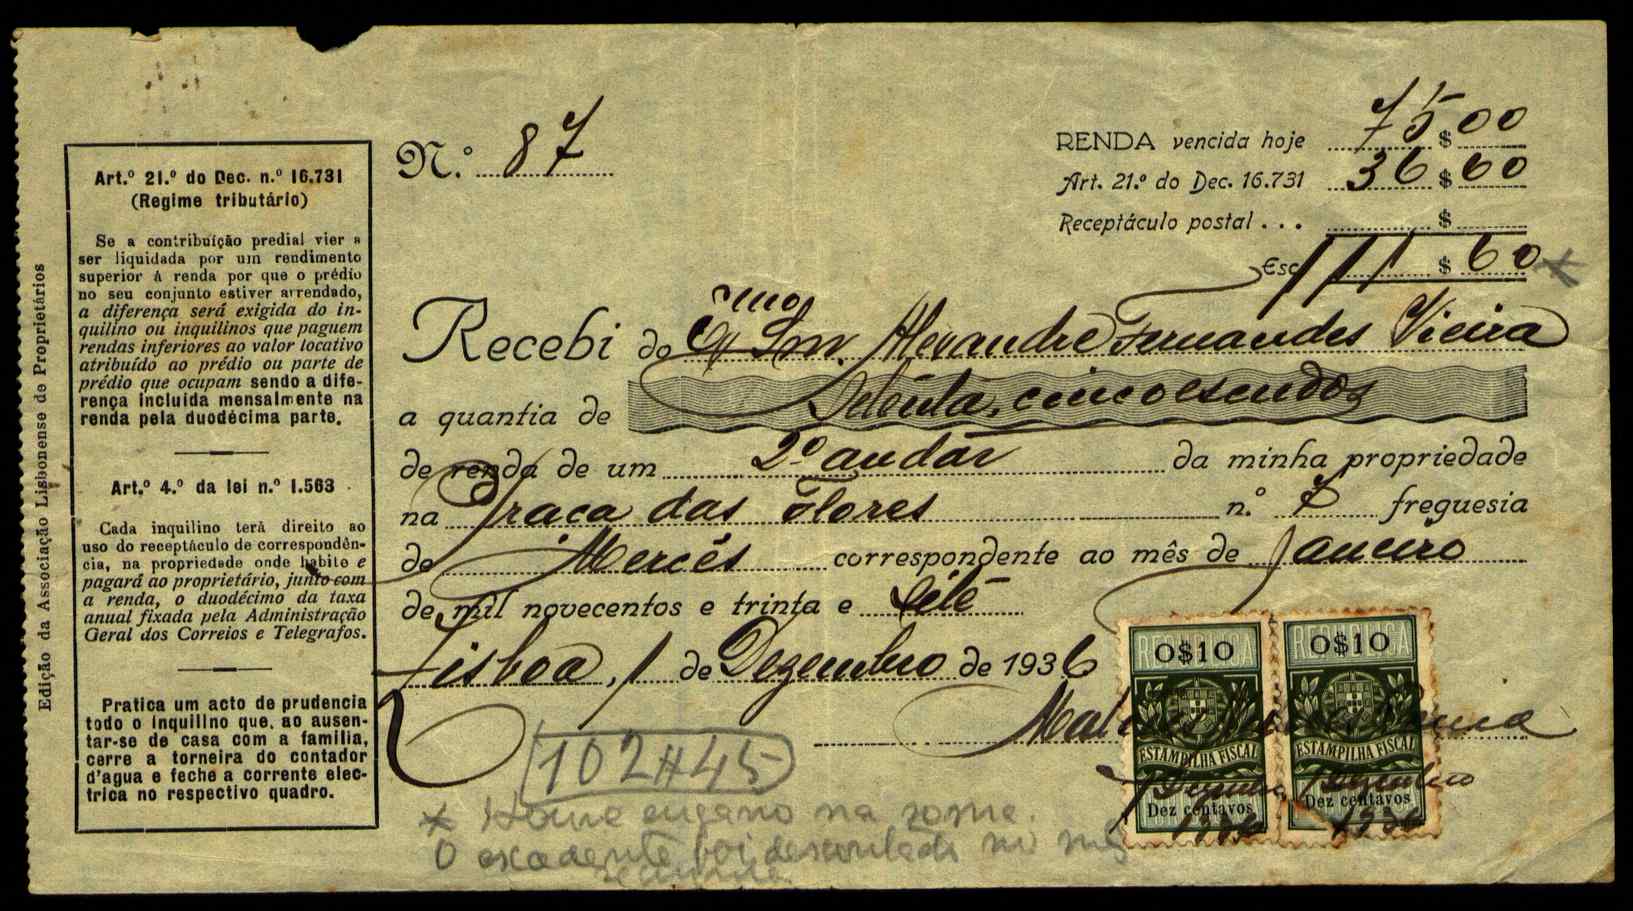 Edição da Associação Lisbonense de Proprietários
Art.º 21.º do Dec. n.º 16.731
(Regime tributário)
Se a contribuição predial vier a
ser liquidada por um rendimento
superior á renda por que o prédio
no seu conjunto estiver arrendado,
a diferença será exigida do in-
quilino ou inquilinos que paguem
rendas inferiores ao valor locativo
atribuído ao prédio ou parte de
prédio que ocupam sendo a dife-
rença incluida mensalmente na
renda pela duodécima parte.
Art.º 4.º da lei n.º 1.563
Cada inquilino terá direito ao
uso do receptáculo de correspondên-
cia, na propriedade onde habite e
pagará ao proprietário, junto com
a renda, o duodécimo da taxa
anual fixada pela Administração
Geral dos Correios e Telegrafos.
Pratica um acto de prudencia
todo o inquilino que, ao ausen-
tar-se de casa com a familia,
cerre a torneira do contador
d'agua e feche a corrente elec-
trica no respectivo quadro.
N.º 87
RENDA vencida hoje 75$00
Art. 21.º do Dec. 16.731 36$60
Receptáculo postal . . . $
Esc. 111$60 *
Recebi do Exmo Snr. Alexandre Fernandes Vieira
a quantia de Setenta, cinco escudos
de renda de um 2º andar da minha propriedade
na Praça das Flores n.º 7 freguesia
de Mercês correspondente ao mês de Janeiro
de mil novecentos e trinta e sete
Lisboa, 1 de Dezembro de 1936
REPUBLICA
0$10
ESTAMPILHA FISCAL
Dez centavos
REPUBLICA
0$10
ESTAMPILHA FISCAL
Dez centavos
1 Dezembro 1936
1 Dezembro 1936
102$45
* Houve engano na soma.
O excedente foi descontado no mês
seguinte.